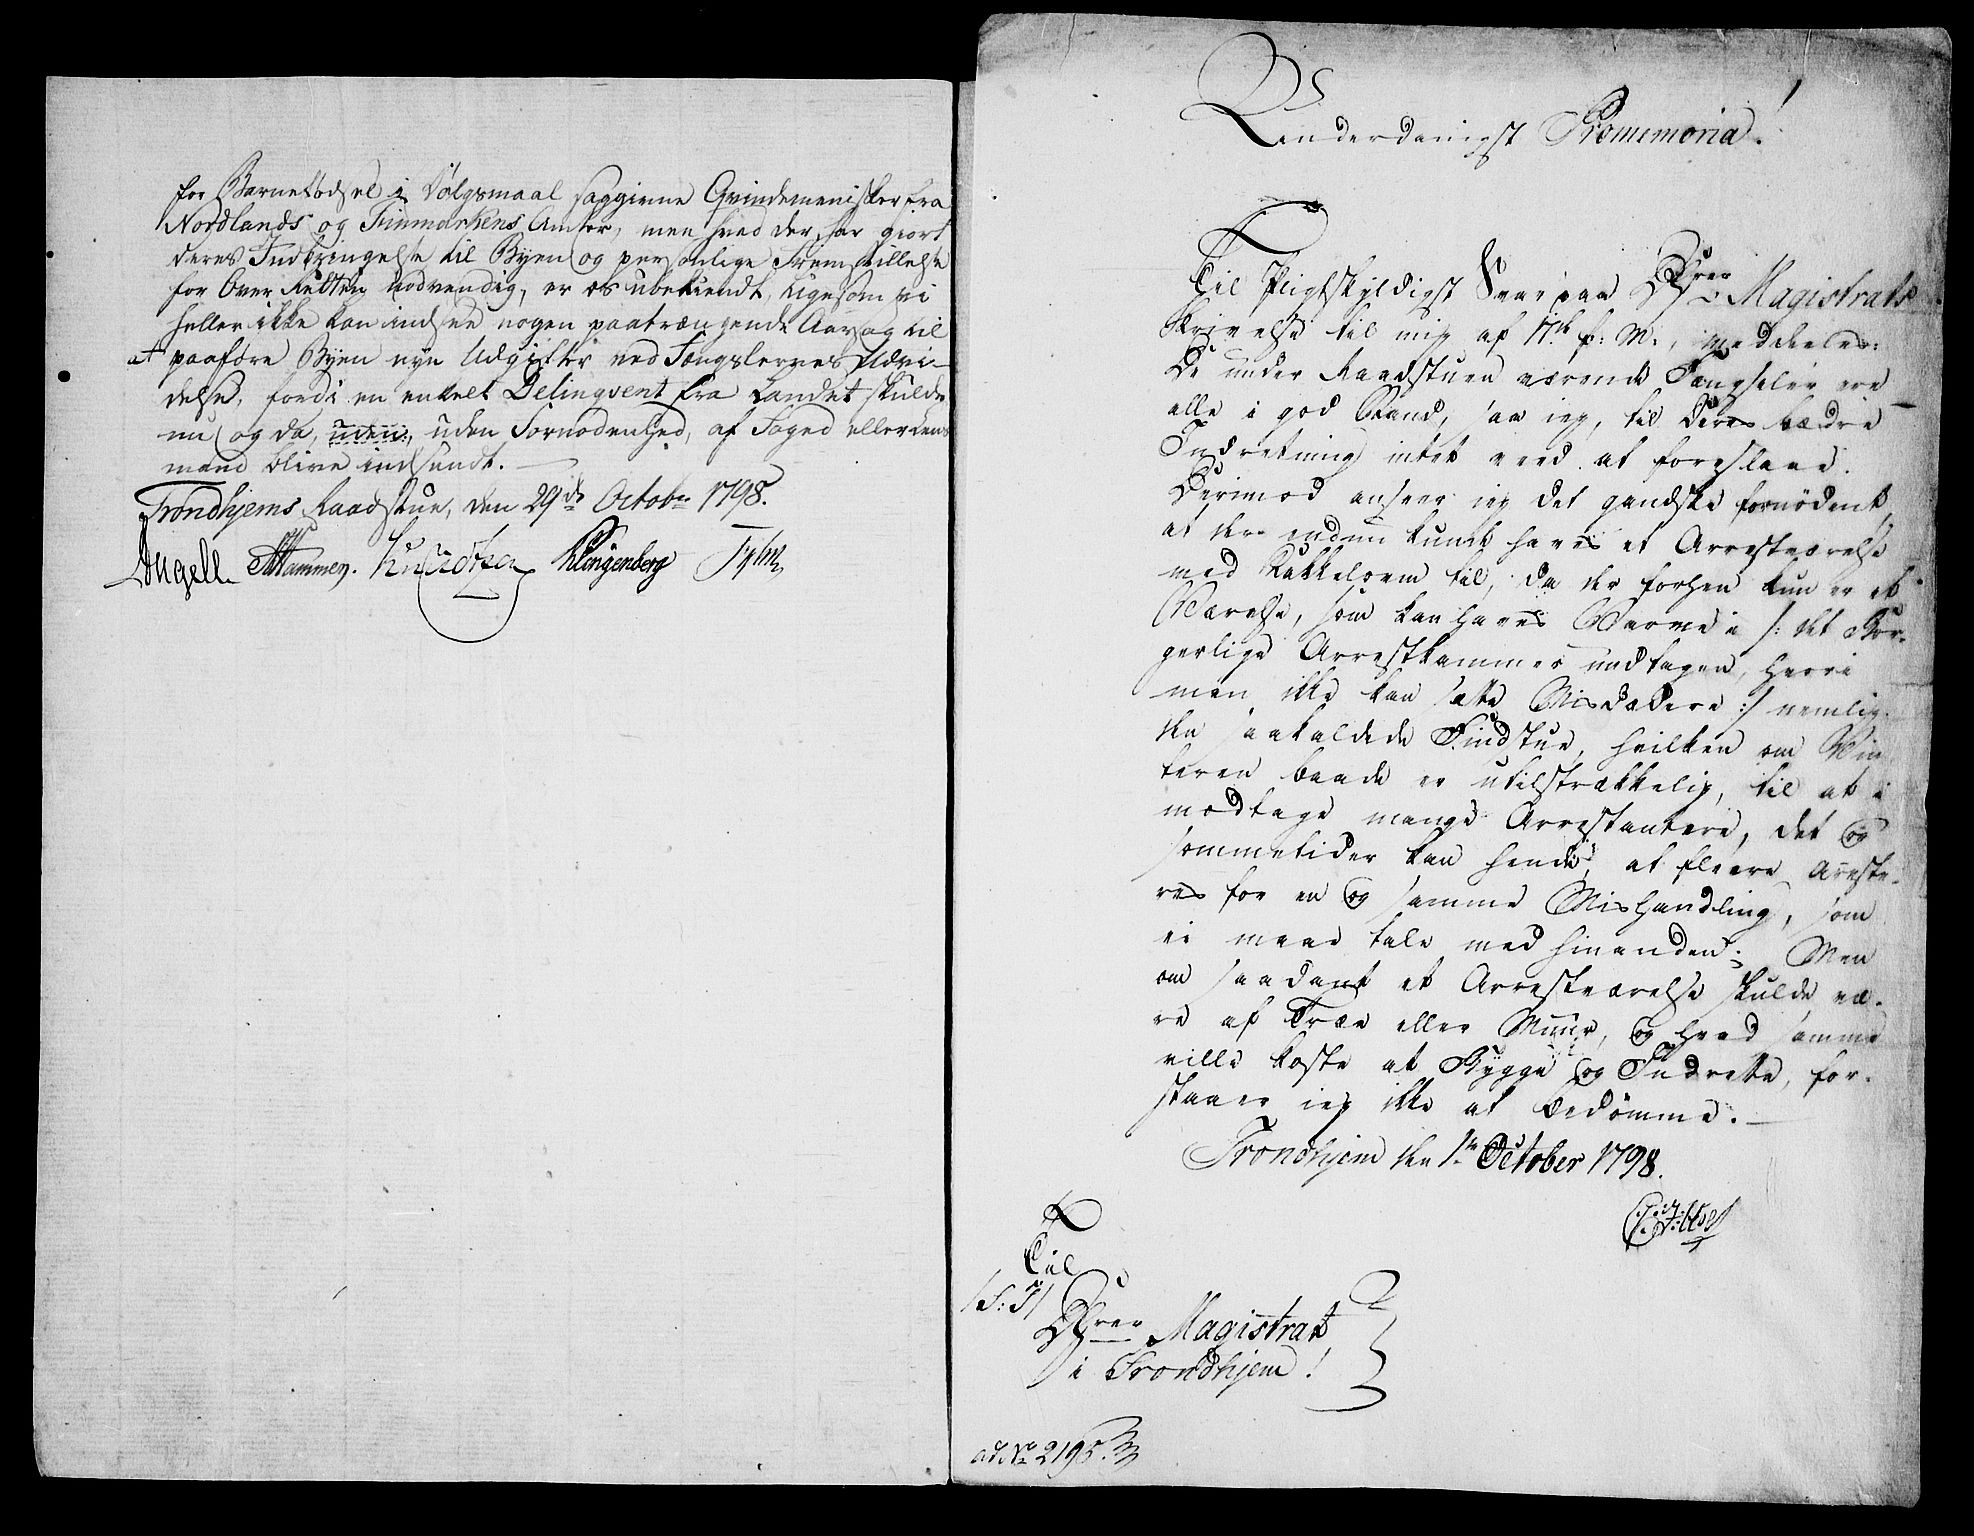 for Barnefødsel i Dølgsmaal saggivne Qvindemenisker fra
Nordlands og Finmarkens Amter, men hvad der har giort
deres Indbringelse til Byen og personlige Fremstillelse
for Over Retten nødvendig, er os ubekiendt, ligesom vi
heller ikke kan indsee nogen paatrængende Aarsag til
at paaføre Byen nye Udgifter ved Fængslernes Udvi-
delse, fordi en enkelt Delinqvent fra Landet skulde
nu og da, uden, uden Fornødenhed, af Foged eller Lens
mand blive indsendt.
Trondhjems Raadstue, den 29de Octobr 1798.
Angell. Hammer. Knudtzon Klingenberg
Underdanigst Promemoria!
Til Pligtskyldigst Svar paa Høyædle Magistrats
Skrivelse til mig af 17de f: M:, meddeeles:
De under Raadstuen værende Fængseler ere
alle i god Stand, saa jeg, til deres bædre
Indretning intet veed at foreslaae.
Derimod anseer jeg det gandske fornødent,
at der endnu kunde haves et Arrestværelse
med Kakkelovn til, da der forhen kun er et
Værelse, som kan haves Varme i /: det Bor-
gerlige Arrestkammer undtagen, hvori
man ikke kan sætte Misdædere :/ nemlig
den saakaldede Findstue, hvilken om Vin
teren baade er utilstrækkelig, til at i
modtage mange Arrestantere, det og
sommetider kan hende, at fleere Areste-
res for en og samme Mishandling, som
ei maae tale med hinanden; Men
om saadant et Arrestværelse skulde væ-
re af Træe eller Muur, og hvad samme
ville koste at Bygge og Indrette, for-
staaer jeg ikke at bedømme.
Trondhjem den 1te October 1798.
Til
/S: T/
Magistrat
i Trondhjem!
ad No 2195.